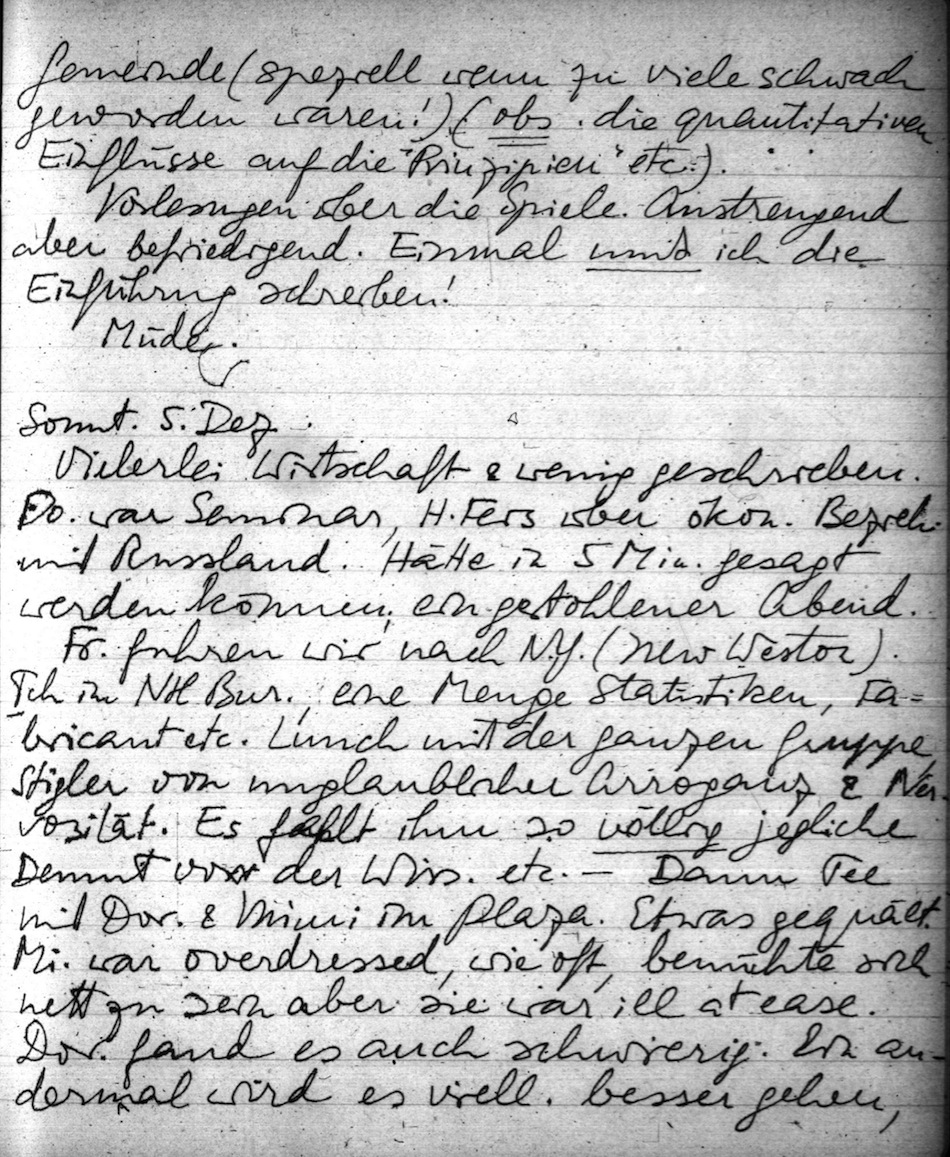 Gemeinde (speziell wenn zu viele schwach
geworden wären!) (obs. die quantitativen
Einflüsse auf die "Prinzipien" etc.).
Vorlesungen über die Spiele. Anstrengend
aber befriedigend. Einmal muß ich die
Einführung schreiben!
Müde.
Sonnt. 5. Dez.
Vielerlei Wirtschaft & wenig geschrieben.
Do. war Seminar, H. Feis über ökon. Bezieh.
mit Russland. Hätte in 5 Min. gesagt
werden können; ein gestohlener Abend.
Fr. fuhren wir nach N.Y. (New Weston).
Ich im Nat Bur., eine Menge Statistiken, Fa=
bricant etc. Lunch mit der ganzen Gruppe,
Stigler von unglaublicher Arroganz & Ner-
vosität. Es fehlt ihm so völlig jegliche
Demut vor der Wiss. etc. — Dann Tee
mit Dor. & Mimi im Plaza. Etwas gequält.
Mi. war overdressed, wie oft, bemühte sich
nett zu sein aber sie war ill at ease.
Dor. fand es auch schwierig. Ein an-
dermal wird es viell. besser gehen,